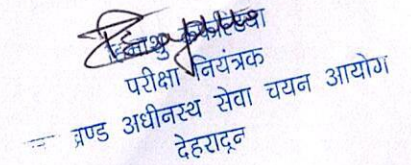 परीक्षा नियंत्रक
ाखण्ड अधीनस्थ सेवा चयन आयोग
देहरादून